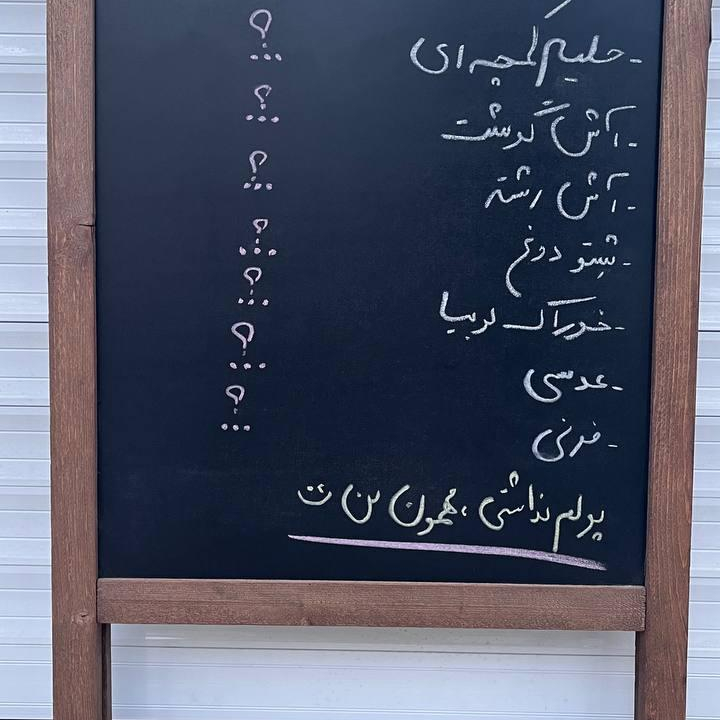 - حلیم کمچه ای ...؟
- آش گوشت ...؟
- آش رشته ...؟
- دوغ ...؟
- خوراک لوبیا ...؟
- عدسی ...؟
- فرنی ...؟
پولم نداشتی، مهمون من